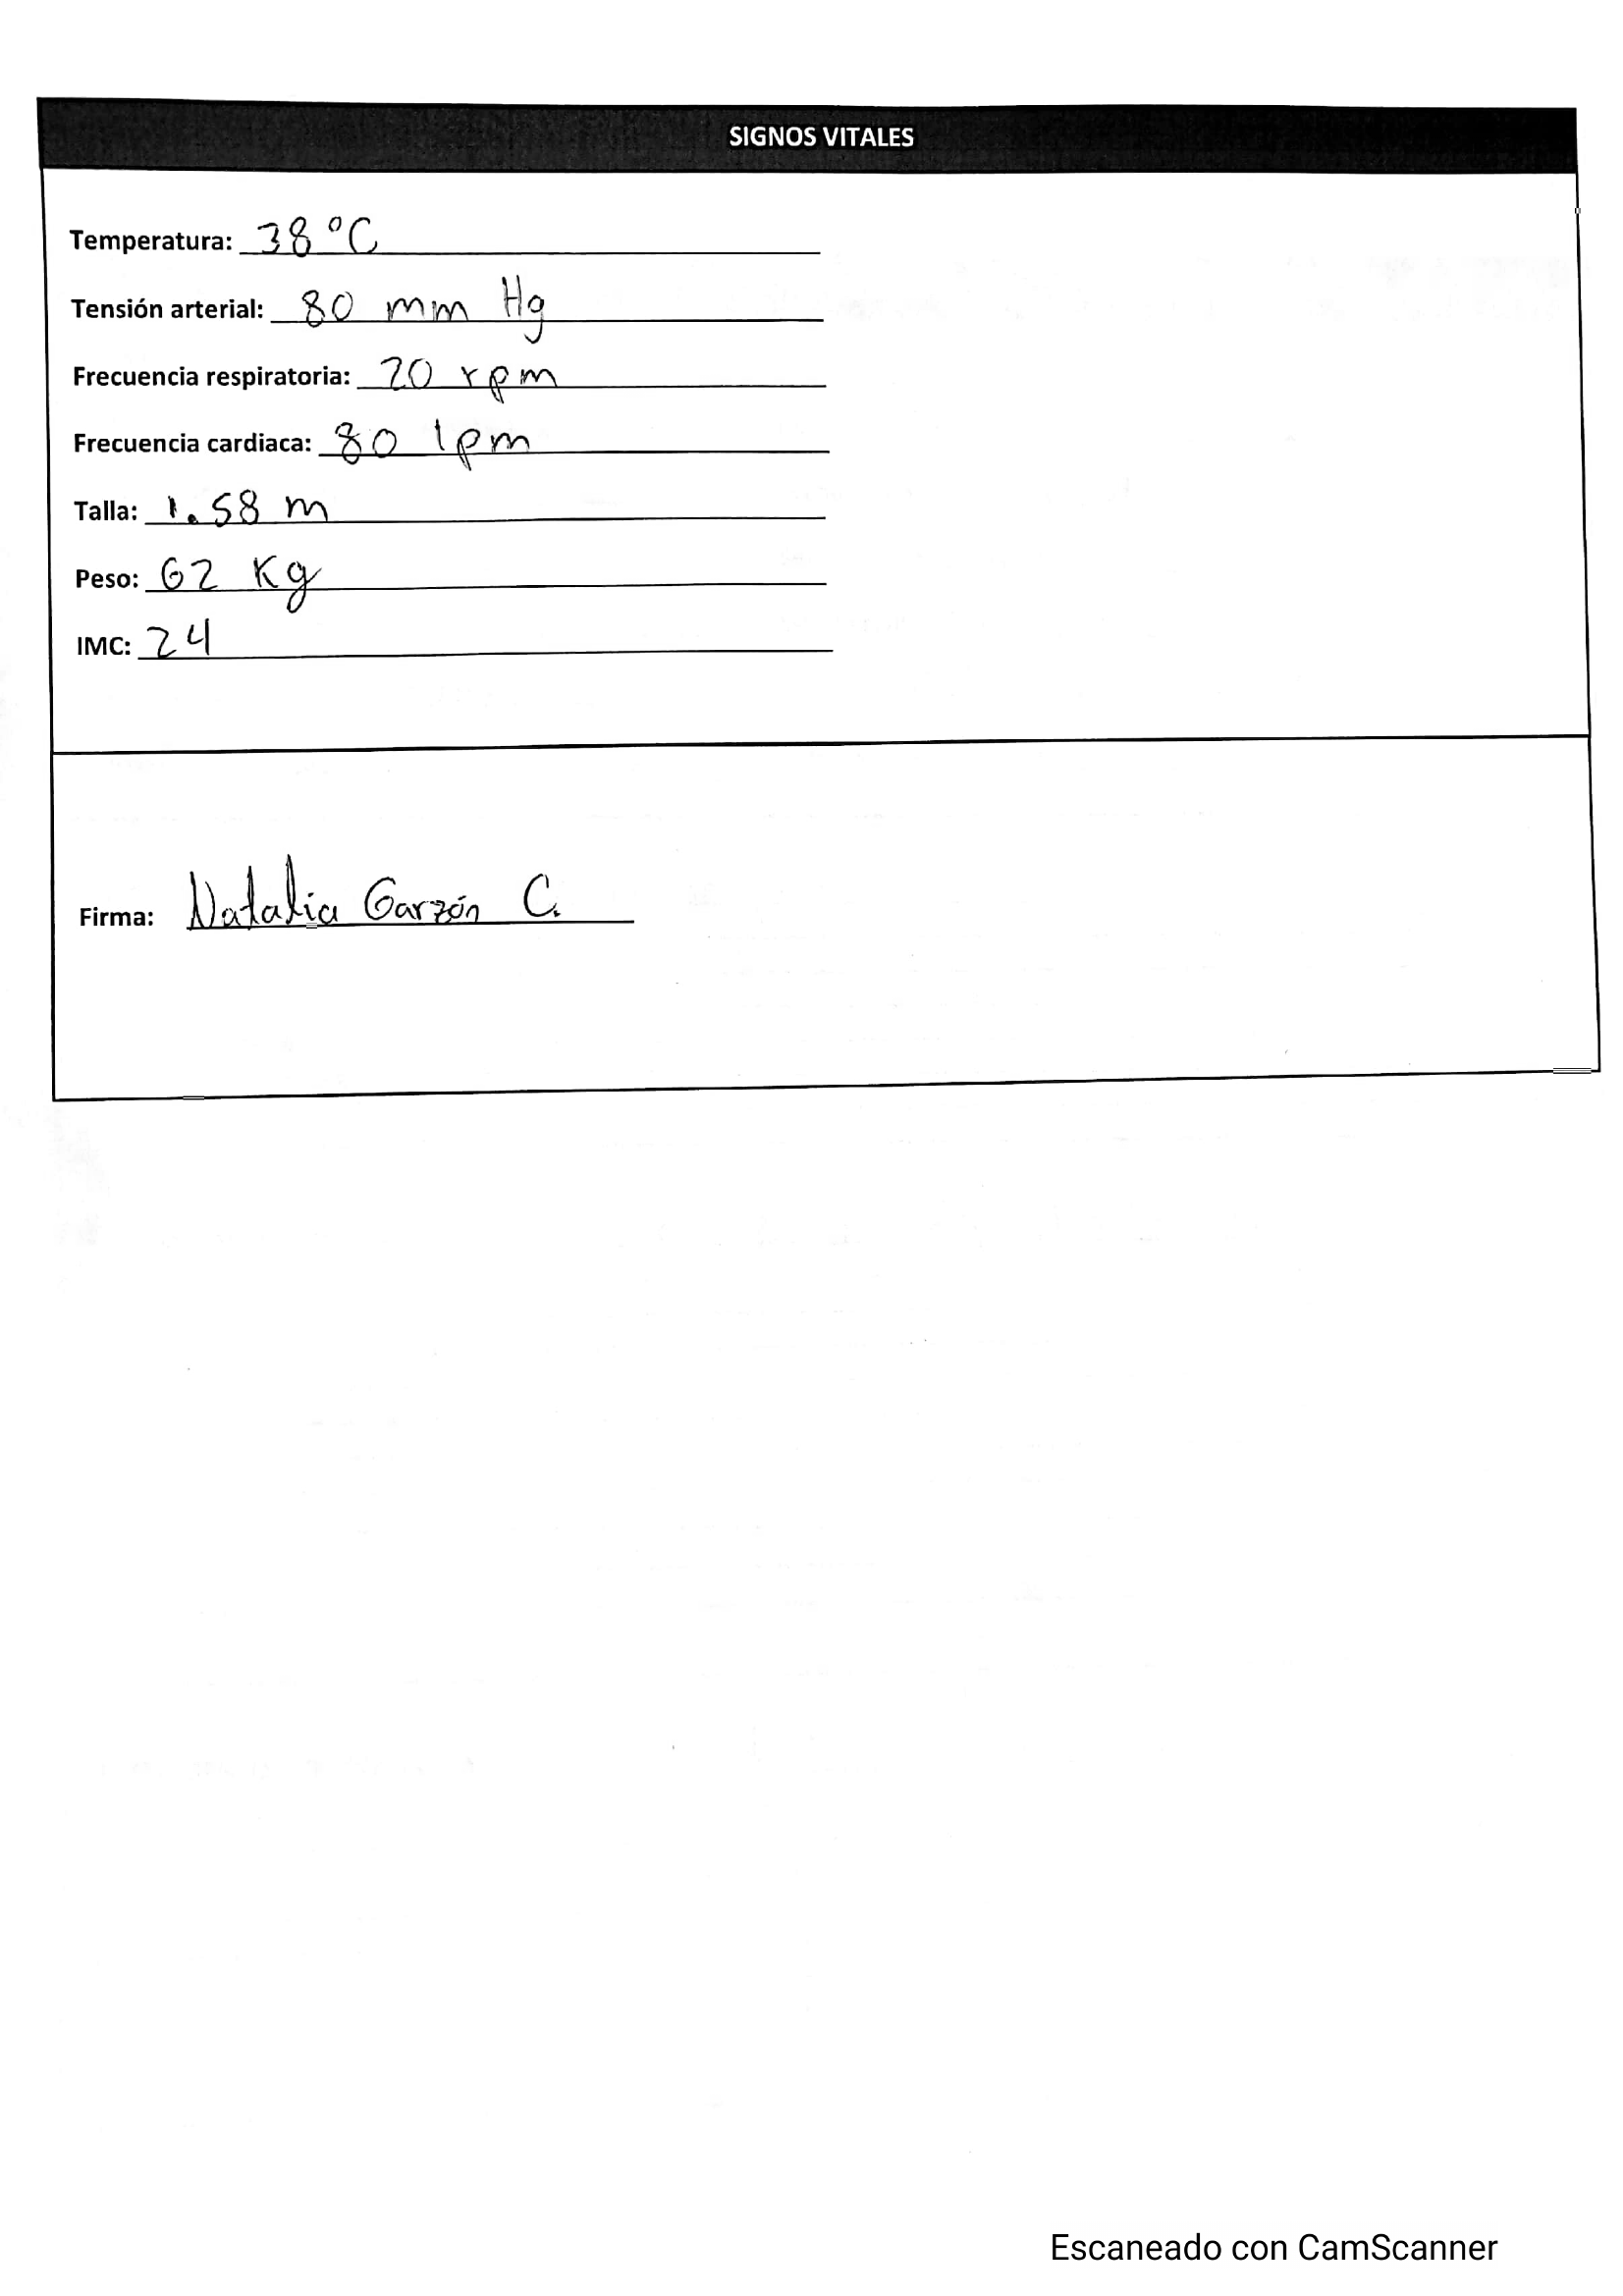 SIGNOS VITALES
Temperatura: 38 °C
Tensión arterial: 80 mm Hg
Frecuencia respiratoria: 20 rpm
Frecuencia cardiaca: 80 lpm
Talla: 1.58 m
Peso: 62 Kg
IMC: 24
Firma: Natalia Garzón C.
Escaneado con CamScanner